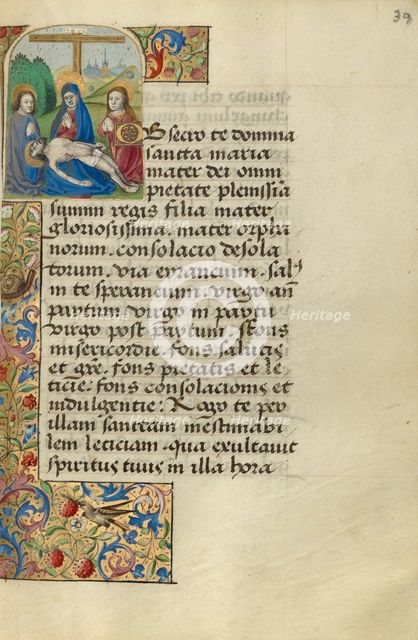 39
O bsecro te domina
sancta maria
mater dei omni
pietate plenissia
summi regis filia mater
gloriosissima. mater orpha
norum. consolacio desola
torum. via errancium. sal⁹
in te sperancium. virgo an̄
partum. virgo in partu
virgo post partum. Fons
misericordie. fons salutis
et gr̄e. fons pietatis et le
ticie: fons consolacionis et
indulgentie: Rogo te per
illam sanctam inestimabi
lem leticiam. qua exultavit
spiritus tuus in illa hora
Heritage
Heritage